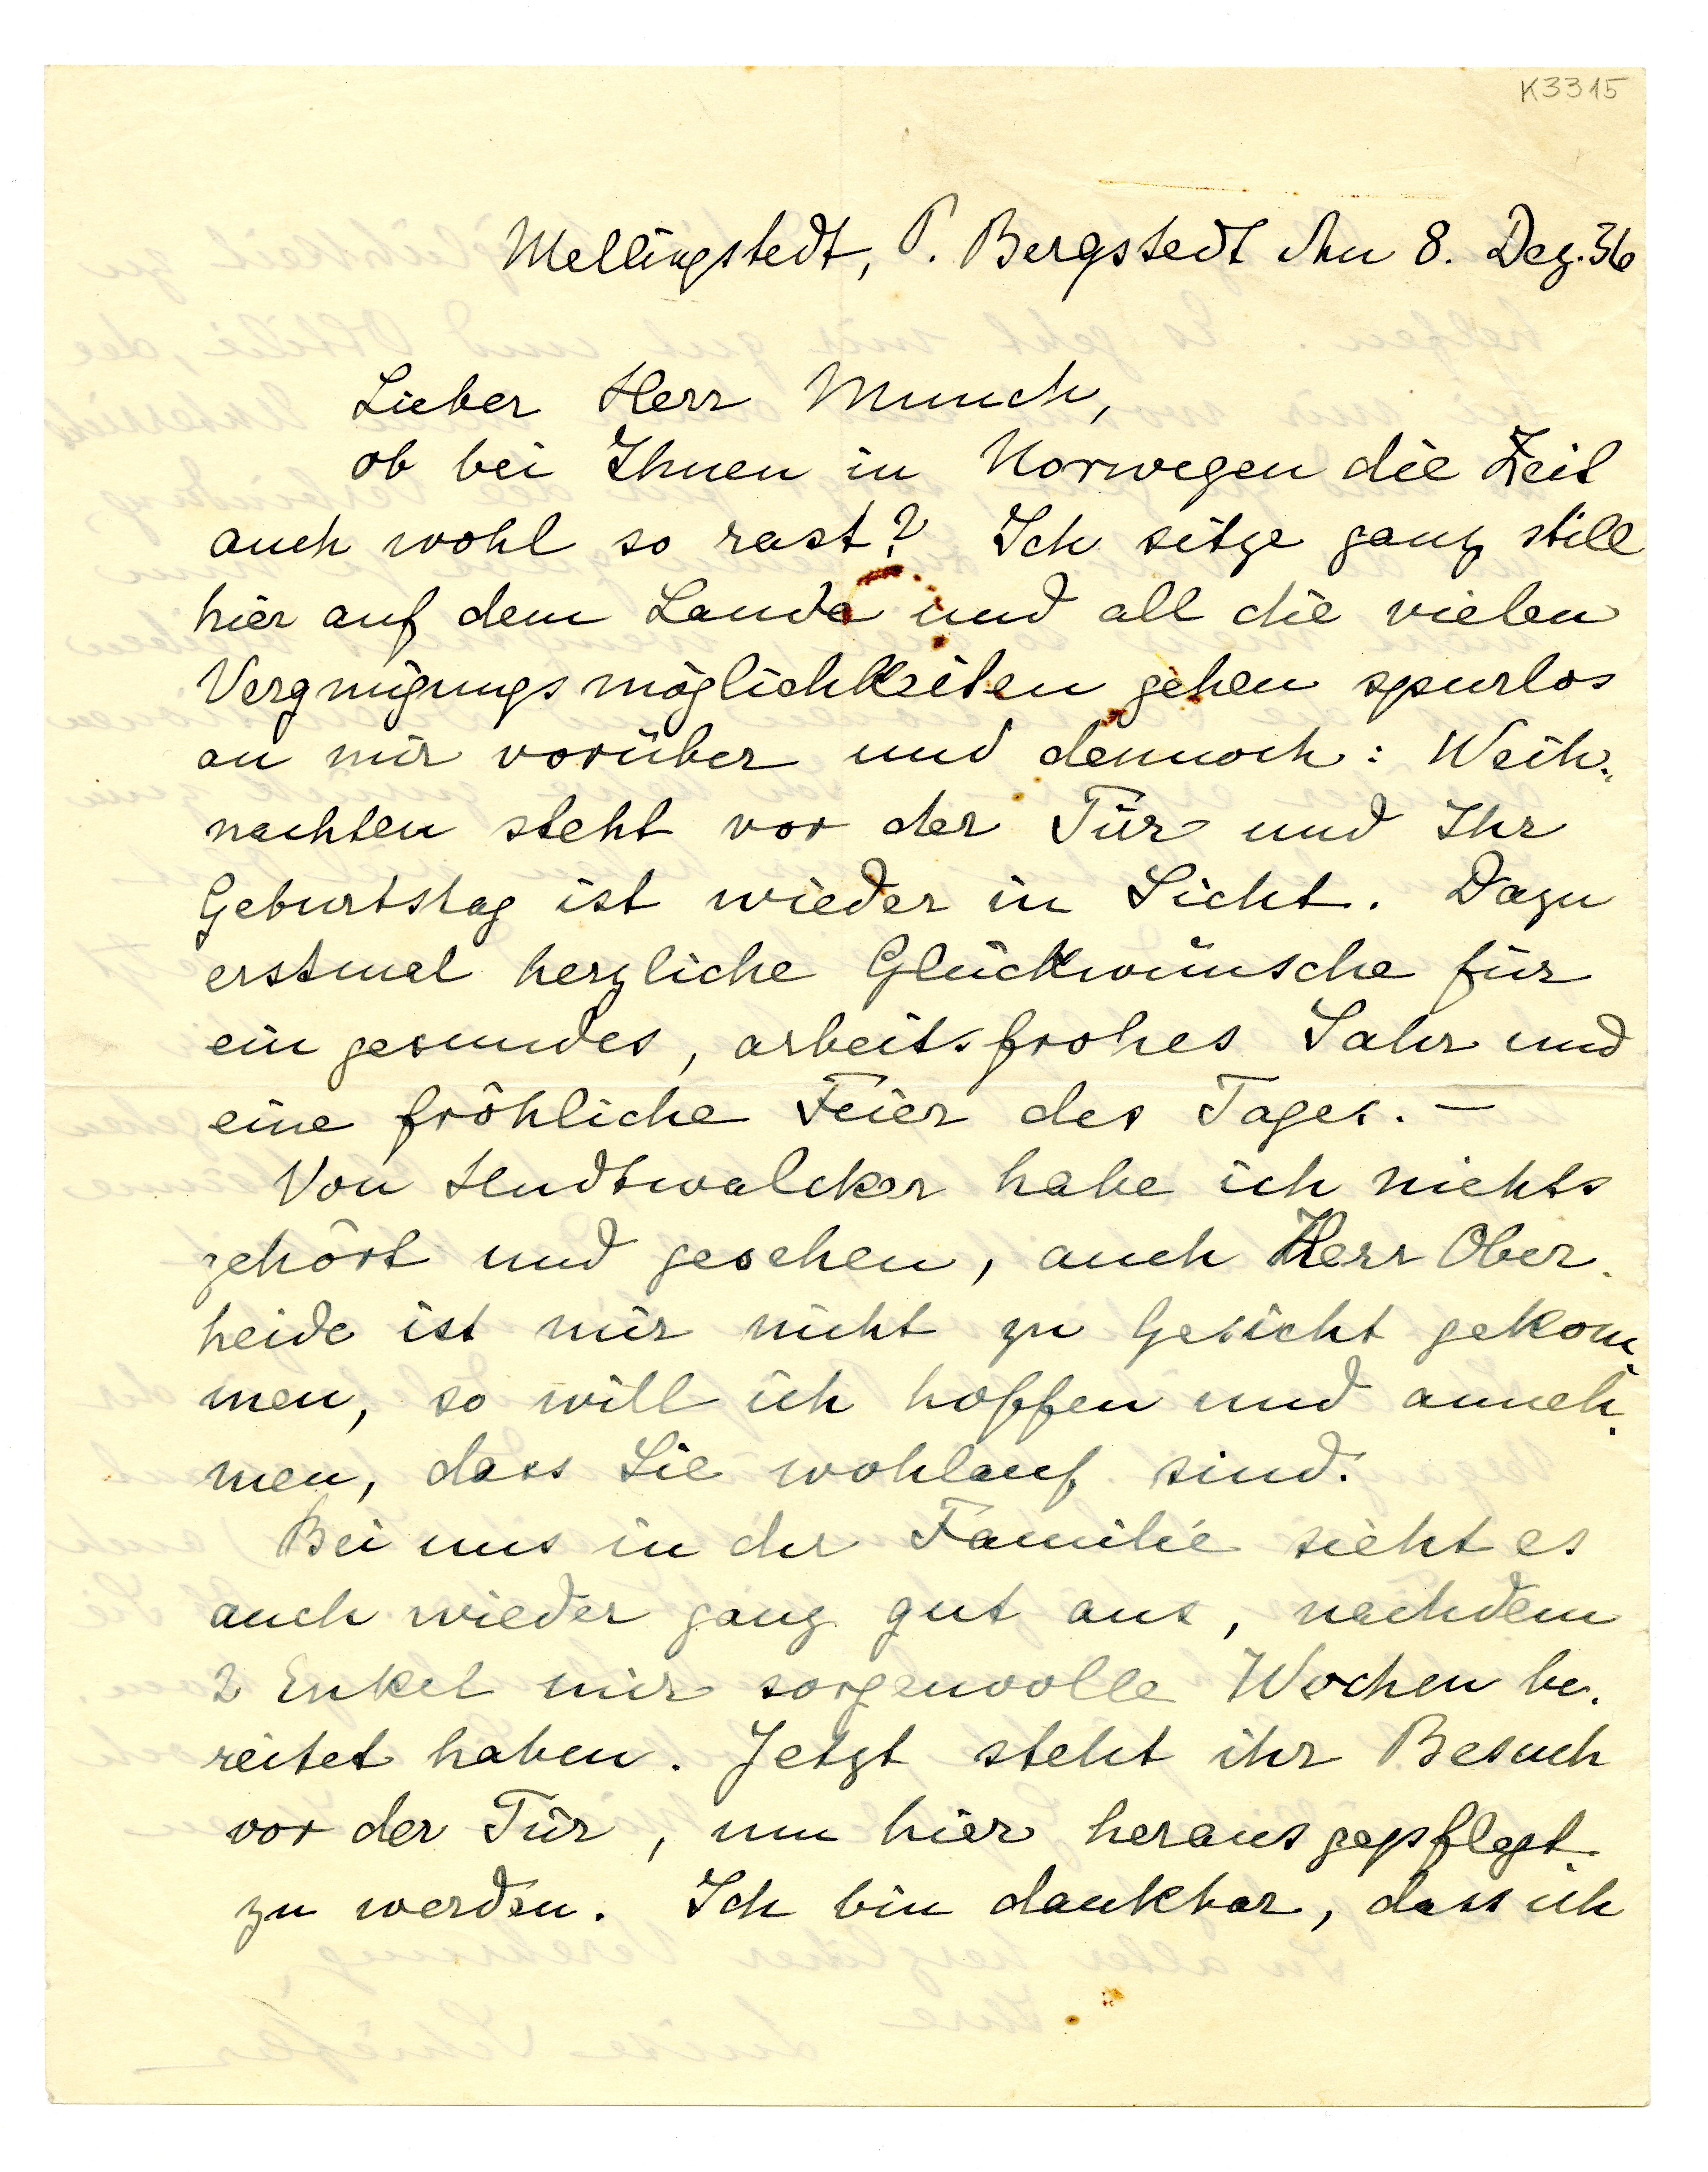 K3315
Mellingstedt, P. Bergstedt den 8. Dez. 36
Lieber Herr Munch,
ob bei Ihnen in Norwegen die Zeit
auch wohl so rast? Ich sitze ganz still
hier auf dem Lande und all die vielen
Vergnügungsmöglichkeiten gehen spurlos
an mir vorüber und dennoch: Weih-
nachten steht vor der Tür und Ihr
Geburtstag ist wieder in Sicht. Dazu
erstmal herzliche Glückwünsche für
ein gesundes, arbeitsfrohes Jahr und
eine fröhliche Feier des Tages. —
Von Hudtwalcker habe ich nichts
gehört und gesehen, auch Herr Ober-
heide ist mir nicht zu Gesicht gekom-
men, so will ich hoffen und anneh-
men, dass Sie wohlauf sind.
Bei uns in der Familie sieht es
auch wieder ganz gut aus, nachdem
2 Enkel mir sorgenvolle Wochen be-
reitet haben. Jetzt steht ihr Besuch
vor der Tür, um hier herausgepflegt
zu werden. Ich bin dankbar, dass ich